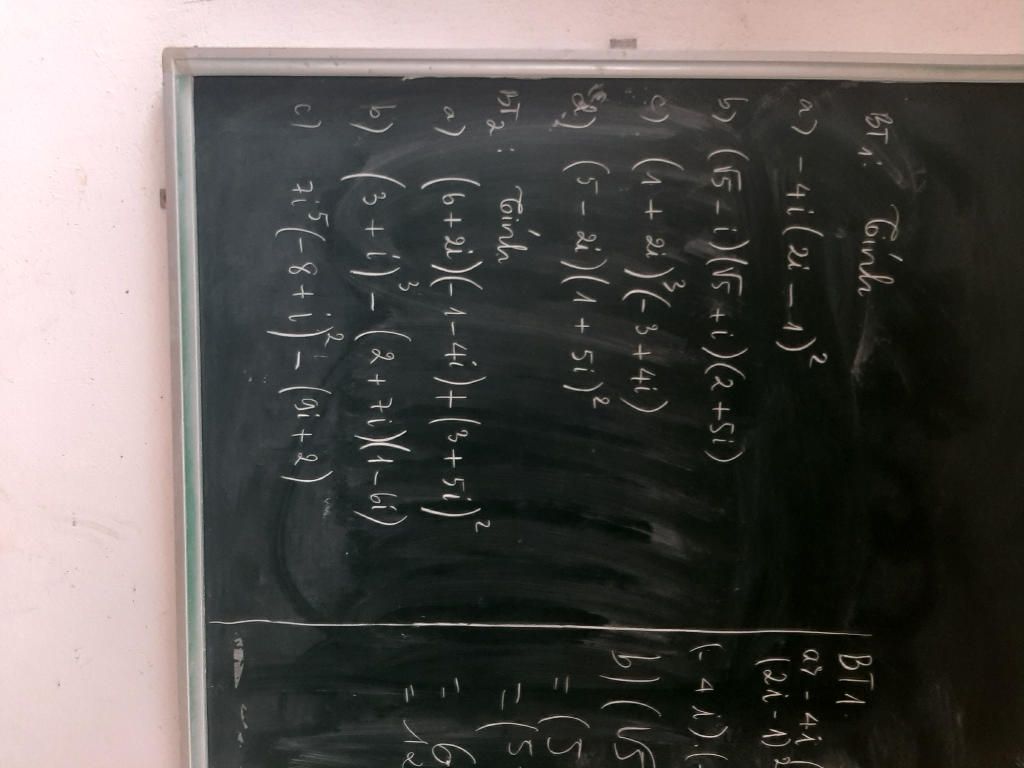 BT1: Tính
a) - 4i (2i - 1)²
b) (√5 - i)(√5 + i)(2 + 5i)
c) (1 + 2i)³(- 3 + 4i)
d) (5 - 2i)(1 + 5i)²
BT2: Tính
a) (6 + 2i)(- 1 - 4i) + (3 + 5i)²
b) (3 + i)³ - (2 + 7i)(1 - 6i)
c) 7i⁵(- 8 + i)² - (9i + 2)
BT1.
a) - 4i (
(2i - 1)2
(- 4i).(-
b) (√5
= (5
= (5
= 6
= 12